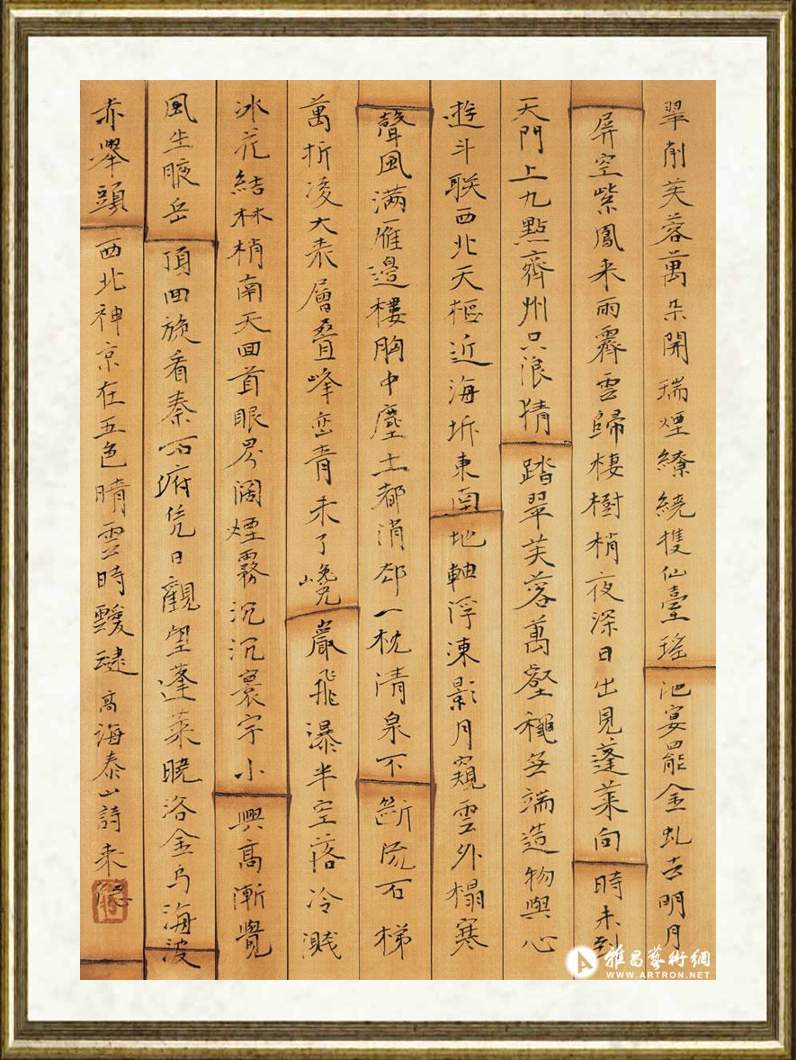 翠削芙蓉萬朵開瑞煙繚繞擭仙臺瑤池宴罷金虬去明月
屏空紫鳳來雨霽雲歸棲樹梢夜深日出見蓬萊向時未到
天門上九點齊州只浪猜踏翠芙蓉萬壑穐無端造物與心
遊斗联西北天樞近海坼東南地軸浮涷影月窺雲外榻寒
聲風满雁邊樓胸中塵土都消却一枕清泉不斷流石梯
萬折凌大表層疊峰巒青未了巉巖飛瀑半空落冷濺
冰花結林梢南天回首眼界闊煙霧沉沉寰宇小興高漸覺
風生腋岳頂回旋看秦石府凭日觀望蓬萊曉洛金烏海波
赤舉頭西北神京在五色晴雲時靉靆高海泰山詩来
雅昌藝術網
WWW.ARTRON.NET